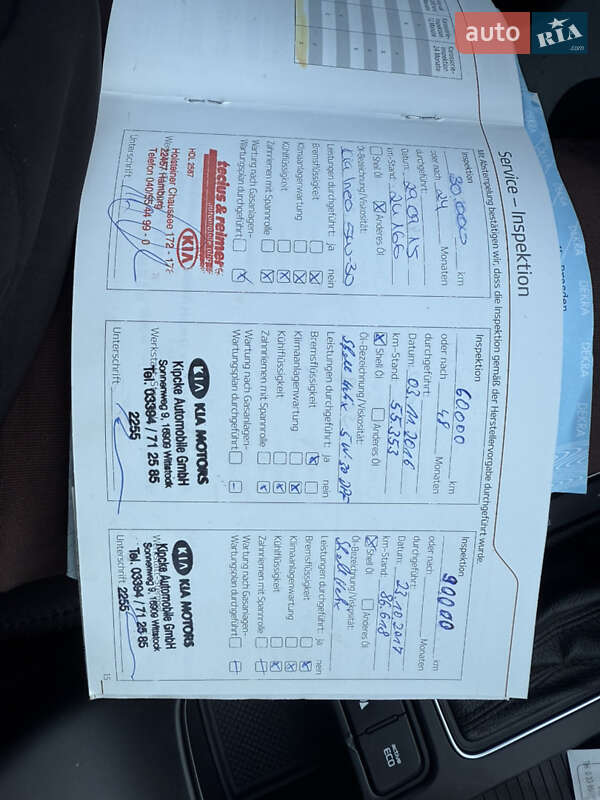 auto RIA .com
Service – Inspektion
Mit Abstempelung bestätigen wir, dass die Inspektion gemäß der Herstellervorgabe durchgeführt wurde.
Inspektion
30.000 km
oder nach 24 Monaten
durchgeführt:
Datum: 29.09.15
km-Stand: 24.166
Shell Öl Anderes Öl
Öl-Bezeichnung/Viskosität:
5W-30
Leistungen durchgeführt: ja nein
Bremsflüssigkeit
Klimaanlagenwartung
Kühlflüssigkeit
Zahnriemen mit Spannrolle
Wartung nach Gasanlagen-
Wartungsplan durchgeführt
tecius & reimers
automobile
HDL 2587
KIA
Holsteiner Chaussee 172 - 178
22457 Hamburg
Telefon 040/55 04 99 - 0
Unterschrift
Inspektion
60000 km
oder nach 48 Monaten
durchgeführt:
Datum: 03.11.2016
km-Stand: 55.353
Shell Öl Anderes Öl
Öl-Bezeichnung/Viskosität:
Shell Helix 5W30
Leistungen durchgeführt: ja nein
Bremsflüssigkeit
Klimaanlagenwartung
Kühlflüssigkeit
Zahnriemen mit Spannrolle
Wartung nach Gasanlagen-
Wartungsplan durchgeführt
KIA KIA MOTORS
Kipcke Automobile GmbH
Sonnenweg 9, 16909 Wittstock
Tel. 03394 / 71 25 85
2255
Unterschrift
Inspektion
90000 km
oder nach Monaten
durchgeführt:
Datum: 23.10.2017
km-Stand: 86.618
Shell Öl Anderes Öl
Öl-Bezeichnung/Viskosität:
Shell Helix
Leistungen durchgeführt: ja nein
Bremsflüssigkeit
Klimaanlagenwartung
Kühlflüssigkeit
Zahnriemen mit Spannrolle
Wartung nach Gasanlagen-
Wartungsplan durchgeführt
KIA KIA MOTORS
Kipcke Automobile GmbH
Sonnenweg 9, 16909 Wittstock
Tel. 03394 / 71 25 85
2255
Unterschrift
15
DEKRA
DEKRA
DEKRA
Dresden
active
ECO